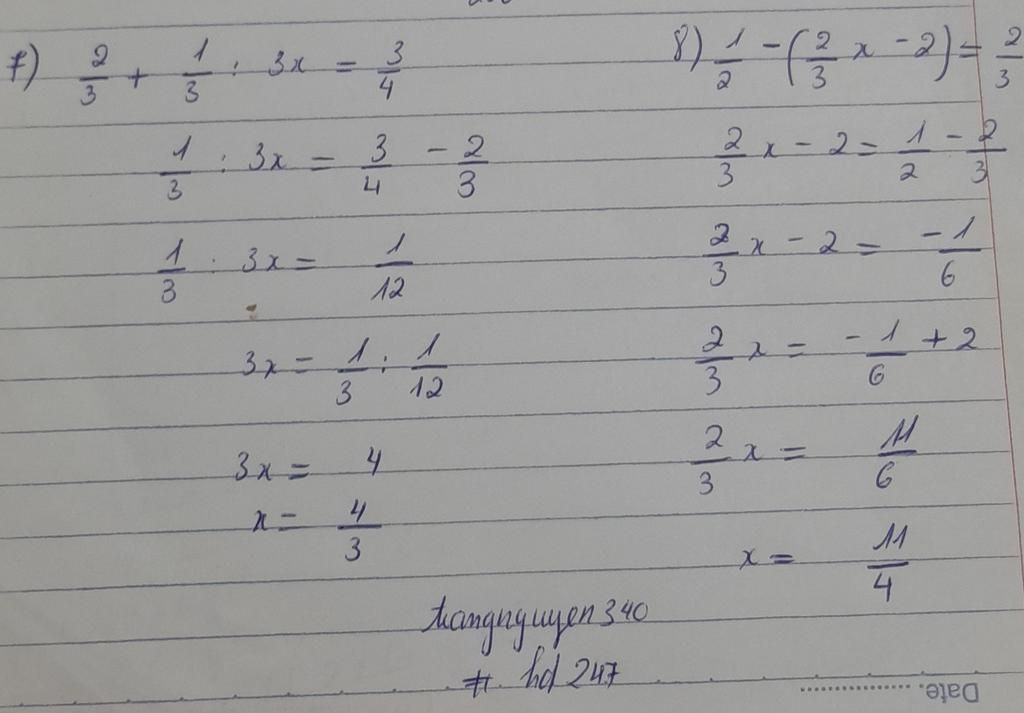 7) 2/3 + 1/3 : 3x = 3/4
1/3 : 3x = 3/4 - 2/3
1/3 : 3x = 1/12
3x = 1/3 : 1/12
3x = 4
x = 4/3
8) 1/2 - (2/3 x - 2) = 2/3
2/3 x - 2 = 1/2 - 2/3
2/3 x - 2 = -1/6
2/3 x = -1/6 + 2
2/3 x = 11/6
x = 11/4
trangnguyen340
# hd 247
Date.